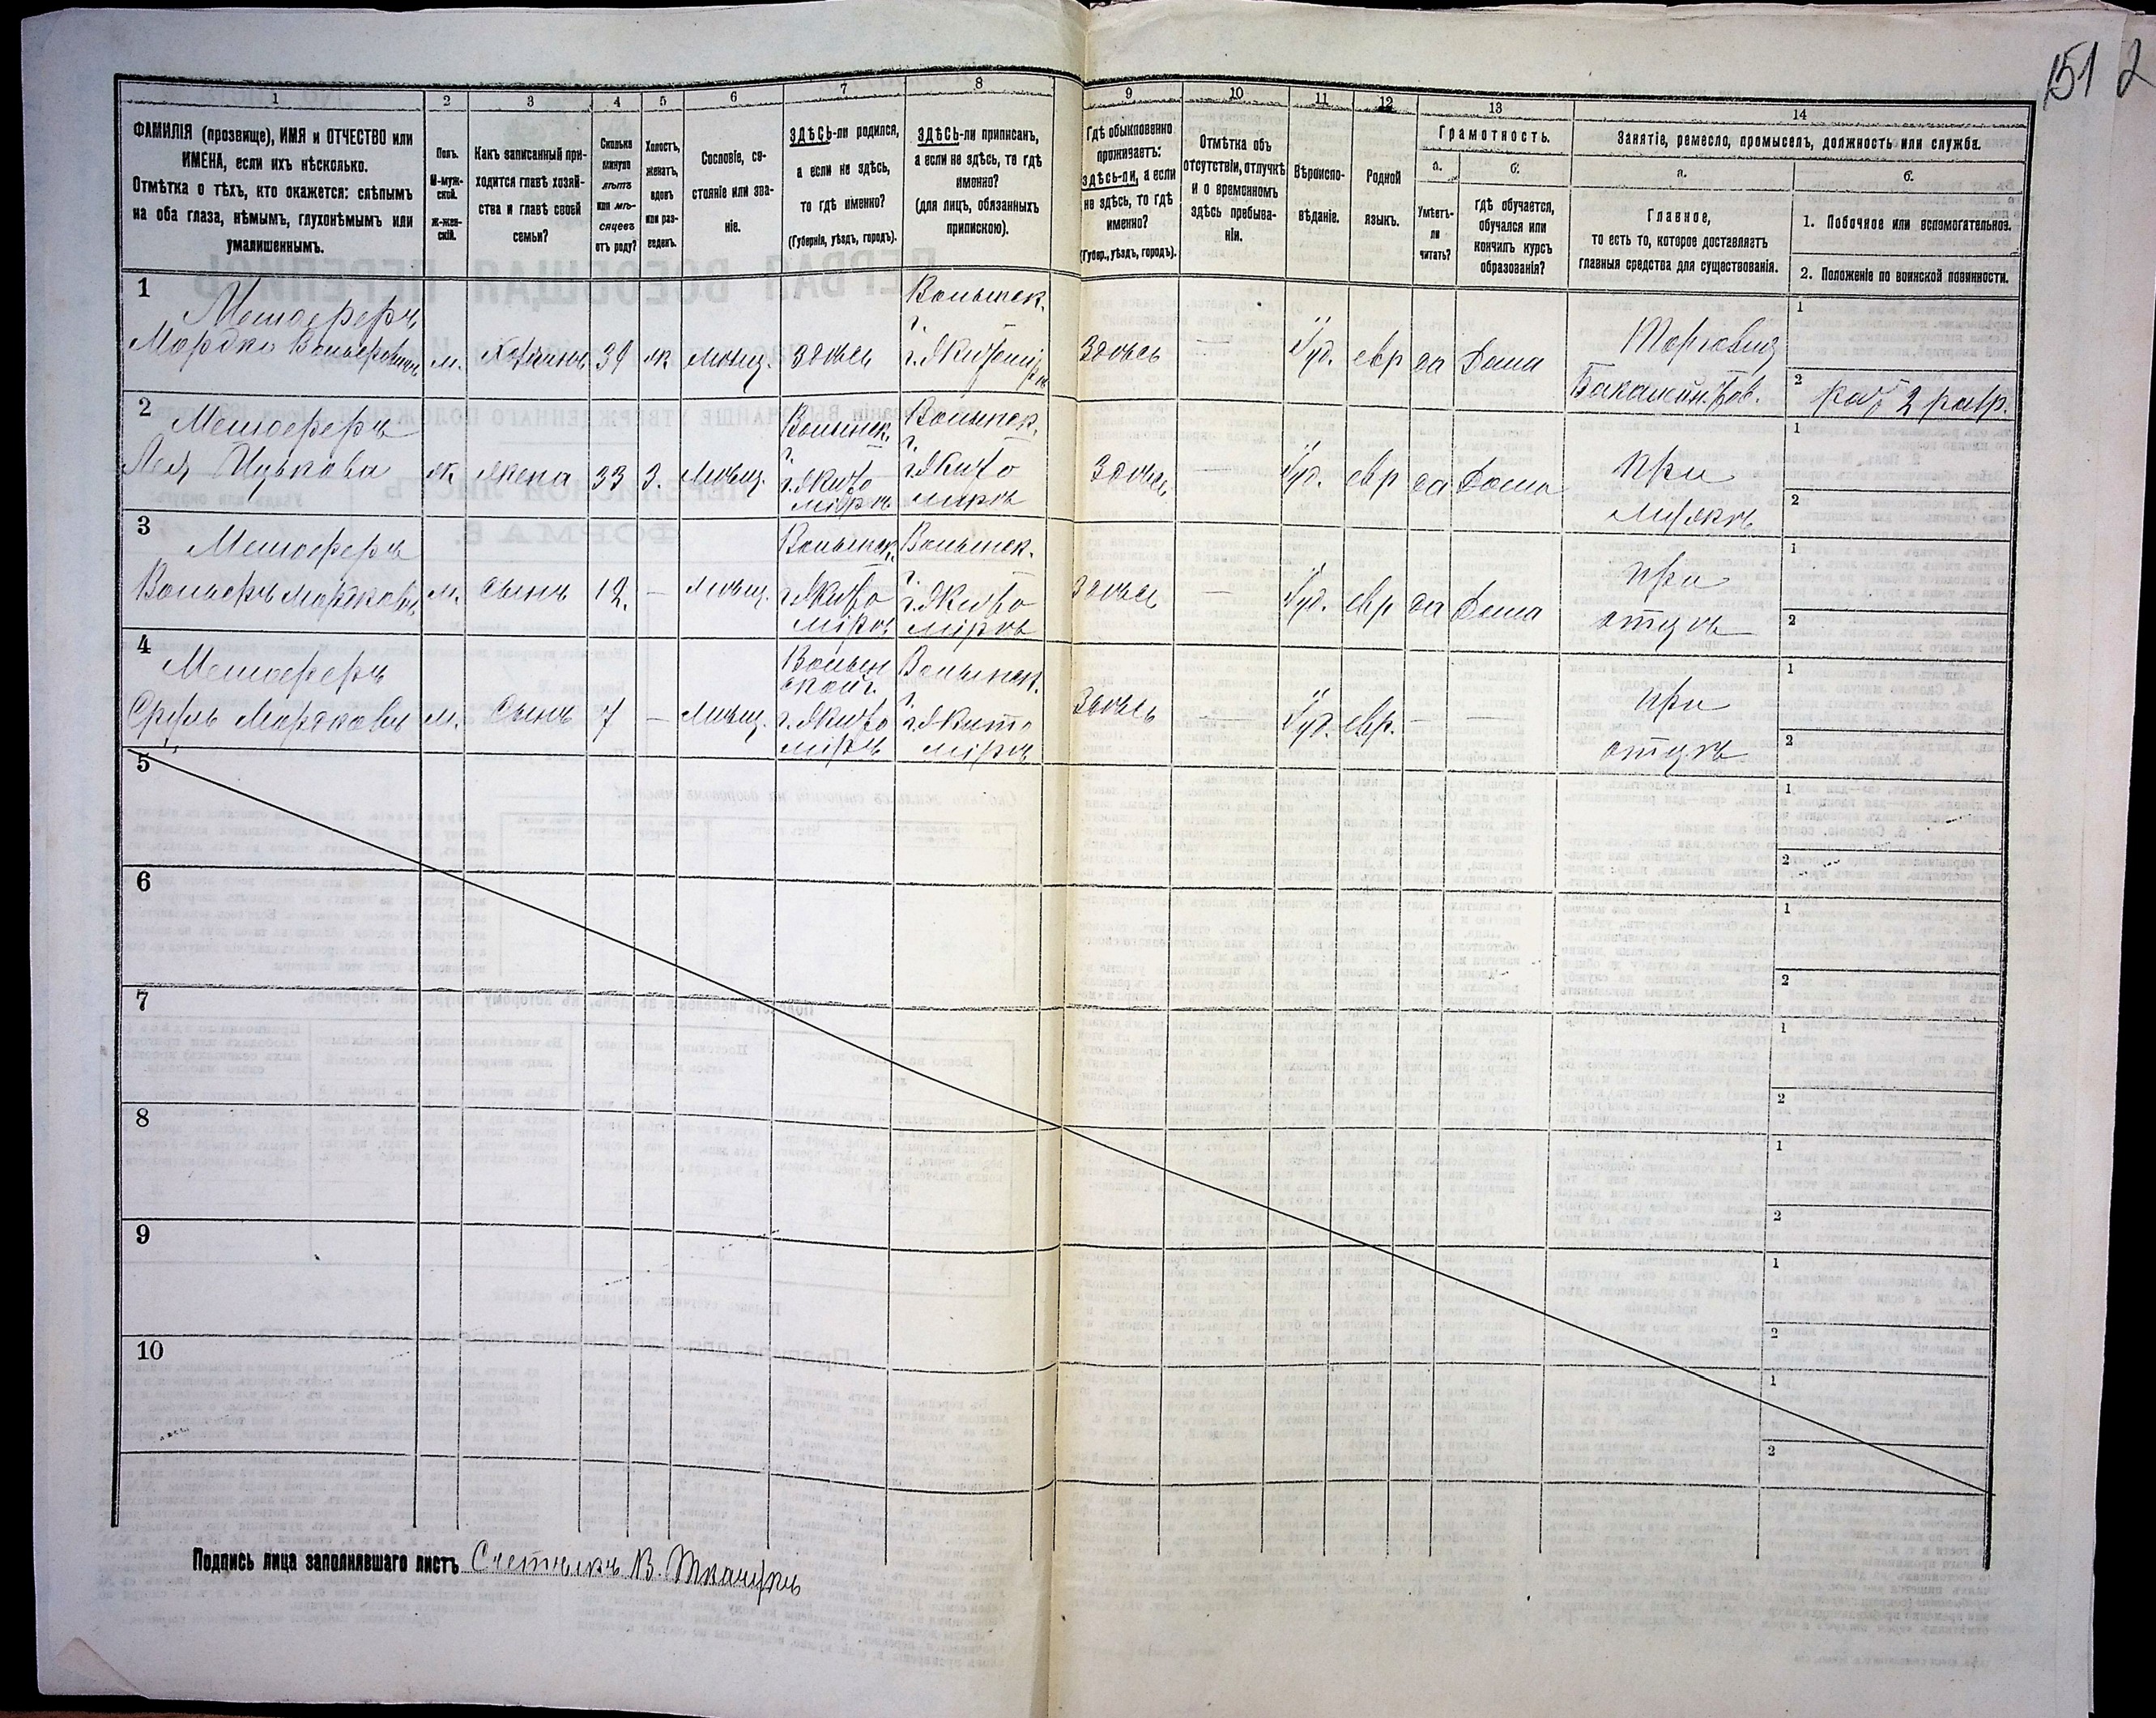 151 2
1 2 3 4 5 6 7 8 9 10 11 12 13 14
ФАМИЛІЯ (прозвище), ИМЯ и ОТЧЕСТВО или
ИМЕНА, если ихъ нѣсколько.
Отмѣтка о тѣхъ, кто окажется: слѣпымъ
на оба глаза, нѣмымъ, глухонѣмымъ или
умалишеннымъ.
Полъ.
М-муж-
ской.
Ж-жен-
скій.
Какъ записанный при-
ходится главѣ хозяй-
ства и главѣ своей
семьи?
Сколько
минуло
лѣтъ
или мѣ-
сяцевъ
отъ роду?
Холостъ,
женатъ,
вдовъ
или раз-
веденъ.
Сословіе, со-
стояніе или зва-
ніе.
ЗДѢСЬ-ли родился,
а если не здѣсь,
то гдѣ именно?
(Губернія, уѣздъ, городъ).
ЗДѢСЬ-ли приписанъ,
а если не здѣсь, то гдѣ
именно?
(для лицъ, обязанныхъ
припискою).
Гдѣ обыкновенно
проживаетъ:
здѣсь-ли, а если
не здѣсь, то гдѣ
именно?
(Губер., уѣздъ, городъ).
Отмѣтка объ
отсутствіи, отлучкѣ
и о временномъ
здѣсь пребыва-
ніи.
Вѣроиспо-
вѣданіе.
Родной
языкъ.
Грамотность.
а.
Умѣетъ-
ли
читать?
б.
гдѣ обучается,
обучался или
кончилъ курсъ
образованія?
Занятіе, ремесло, промыселъ, должность или служба.
а.
Главное,
то есть то, которое доставляетъ
главныя средства для существованія.
б.
1. Побочное или вспомогательное.
2. Положеніе по воинской повинности.
1
Мордко Вольфовичъ
м. Хозяинъ 39 ж мѣщ. здѣсь
Волынск.
г.
Здѣсь — Іуд. евр да Дома
Торговец
1
2
2
Лея Ицькова
ж жена 33 з. мѣщ.
Волынск.
г.
г. Жито
мірѣ
Волынск.
г.
г. Жито
мірѣ
Здѣсь — Іуд. евр да Дома
при
мужѣ
1
2
3
Вольфъ Мордковъ
м. сынъ 12. — мѣщ.
Волынск.
г. Жито
мірѣ
Волынск.
г.
г. Жито
мірѣ
Здѣсь — Іуд. евр да Дома
при
отцѣ
1
2
4
Сруль Мордковъ
м. сынъ 7 — мѣщ.
Волын
ской г.
г. Жито
мірѣ
Волынск.
г.
г. Жито
мірѣ
Здѣсь — Іуд. евр. — —
при
отцѣ
1
2
5
1
2
6
1
2
7
1
2
8
1
2
9
1
2
10
1
2
Подпись лица заполнявшаго листъ Счетчикъ В. Ткачукъ